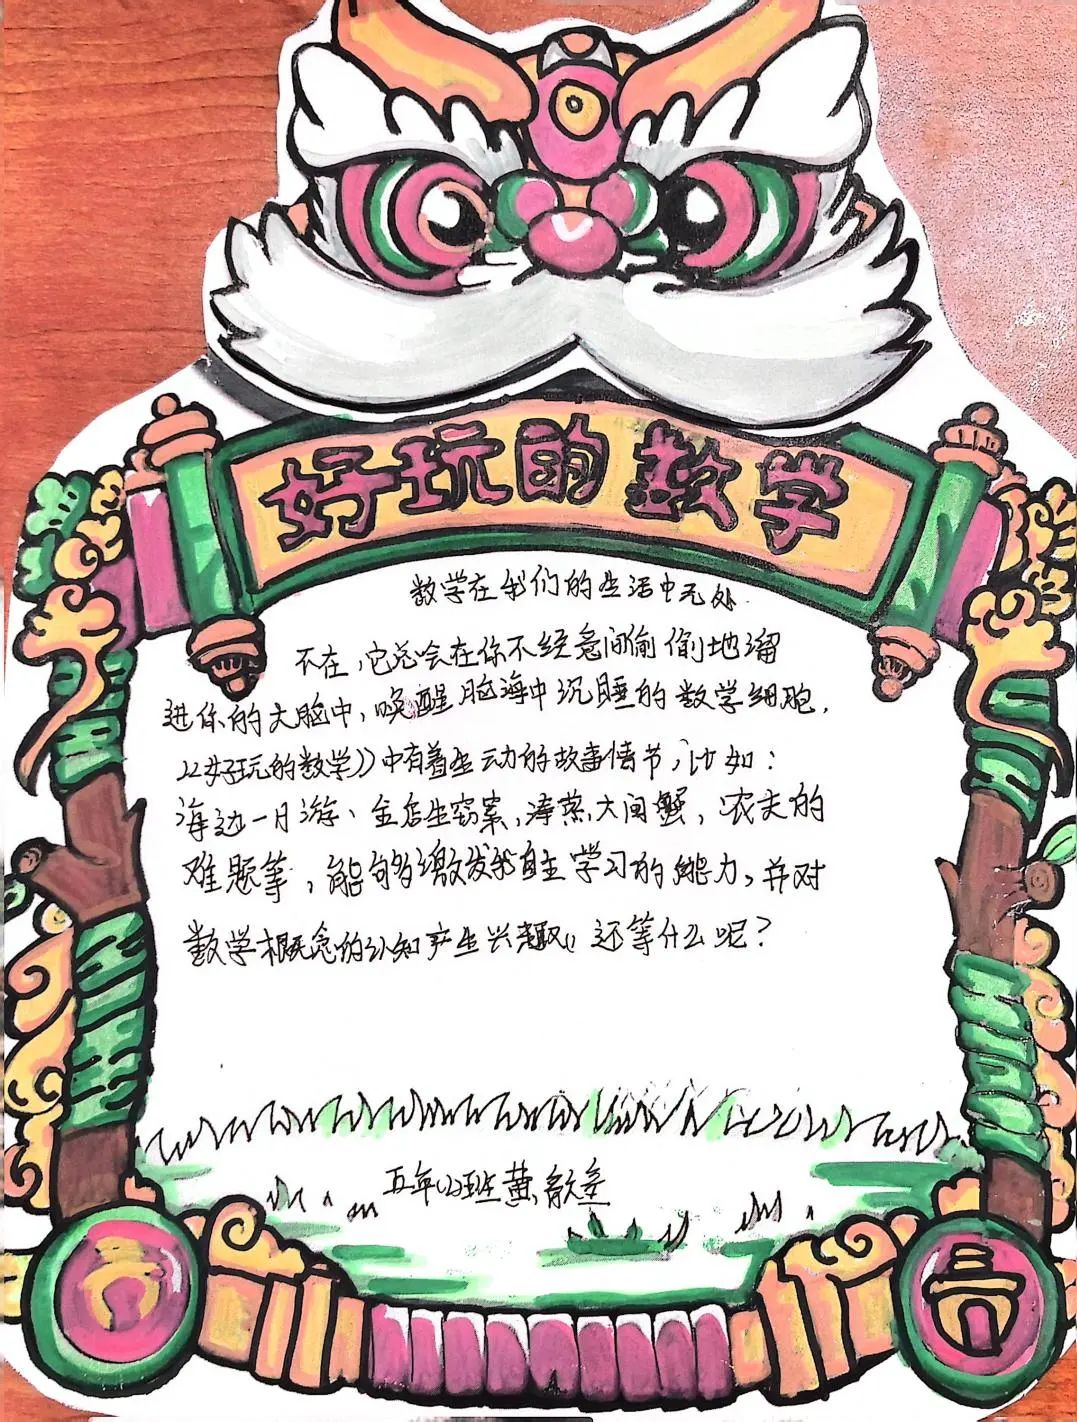 好玩的数学
数学在我们的生活中无处
不在，它总会在你不经意间偷偷地溜
进你的大脑中，唤醒脑海中沉睡的数学细胞，
《好玩的数学》中有着生动的故事情节，比如：
海边一日游、金店生窃案，清蒸大闸蟹，农夫的
难题等，能够激发我自主学习的能力，并对
数学概念的认知产生兴趣，还等什么呢？
五年(2)班黄